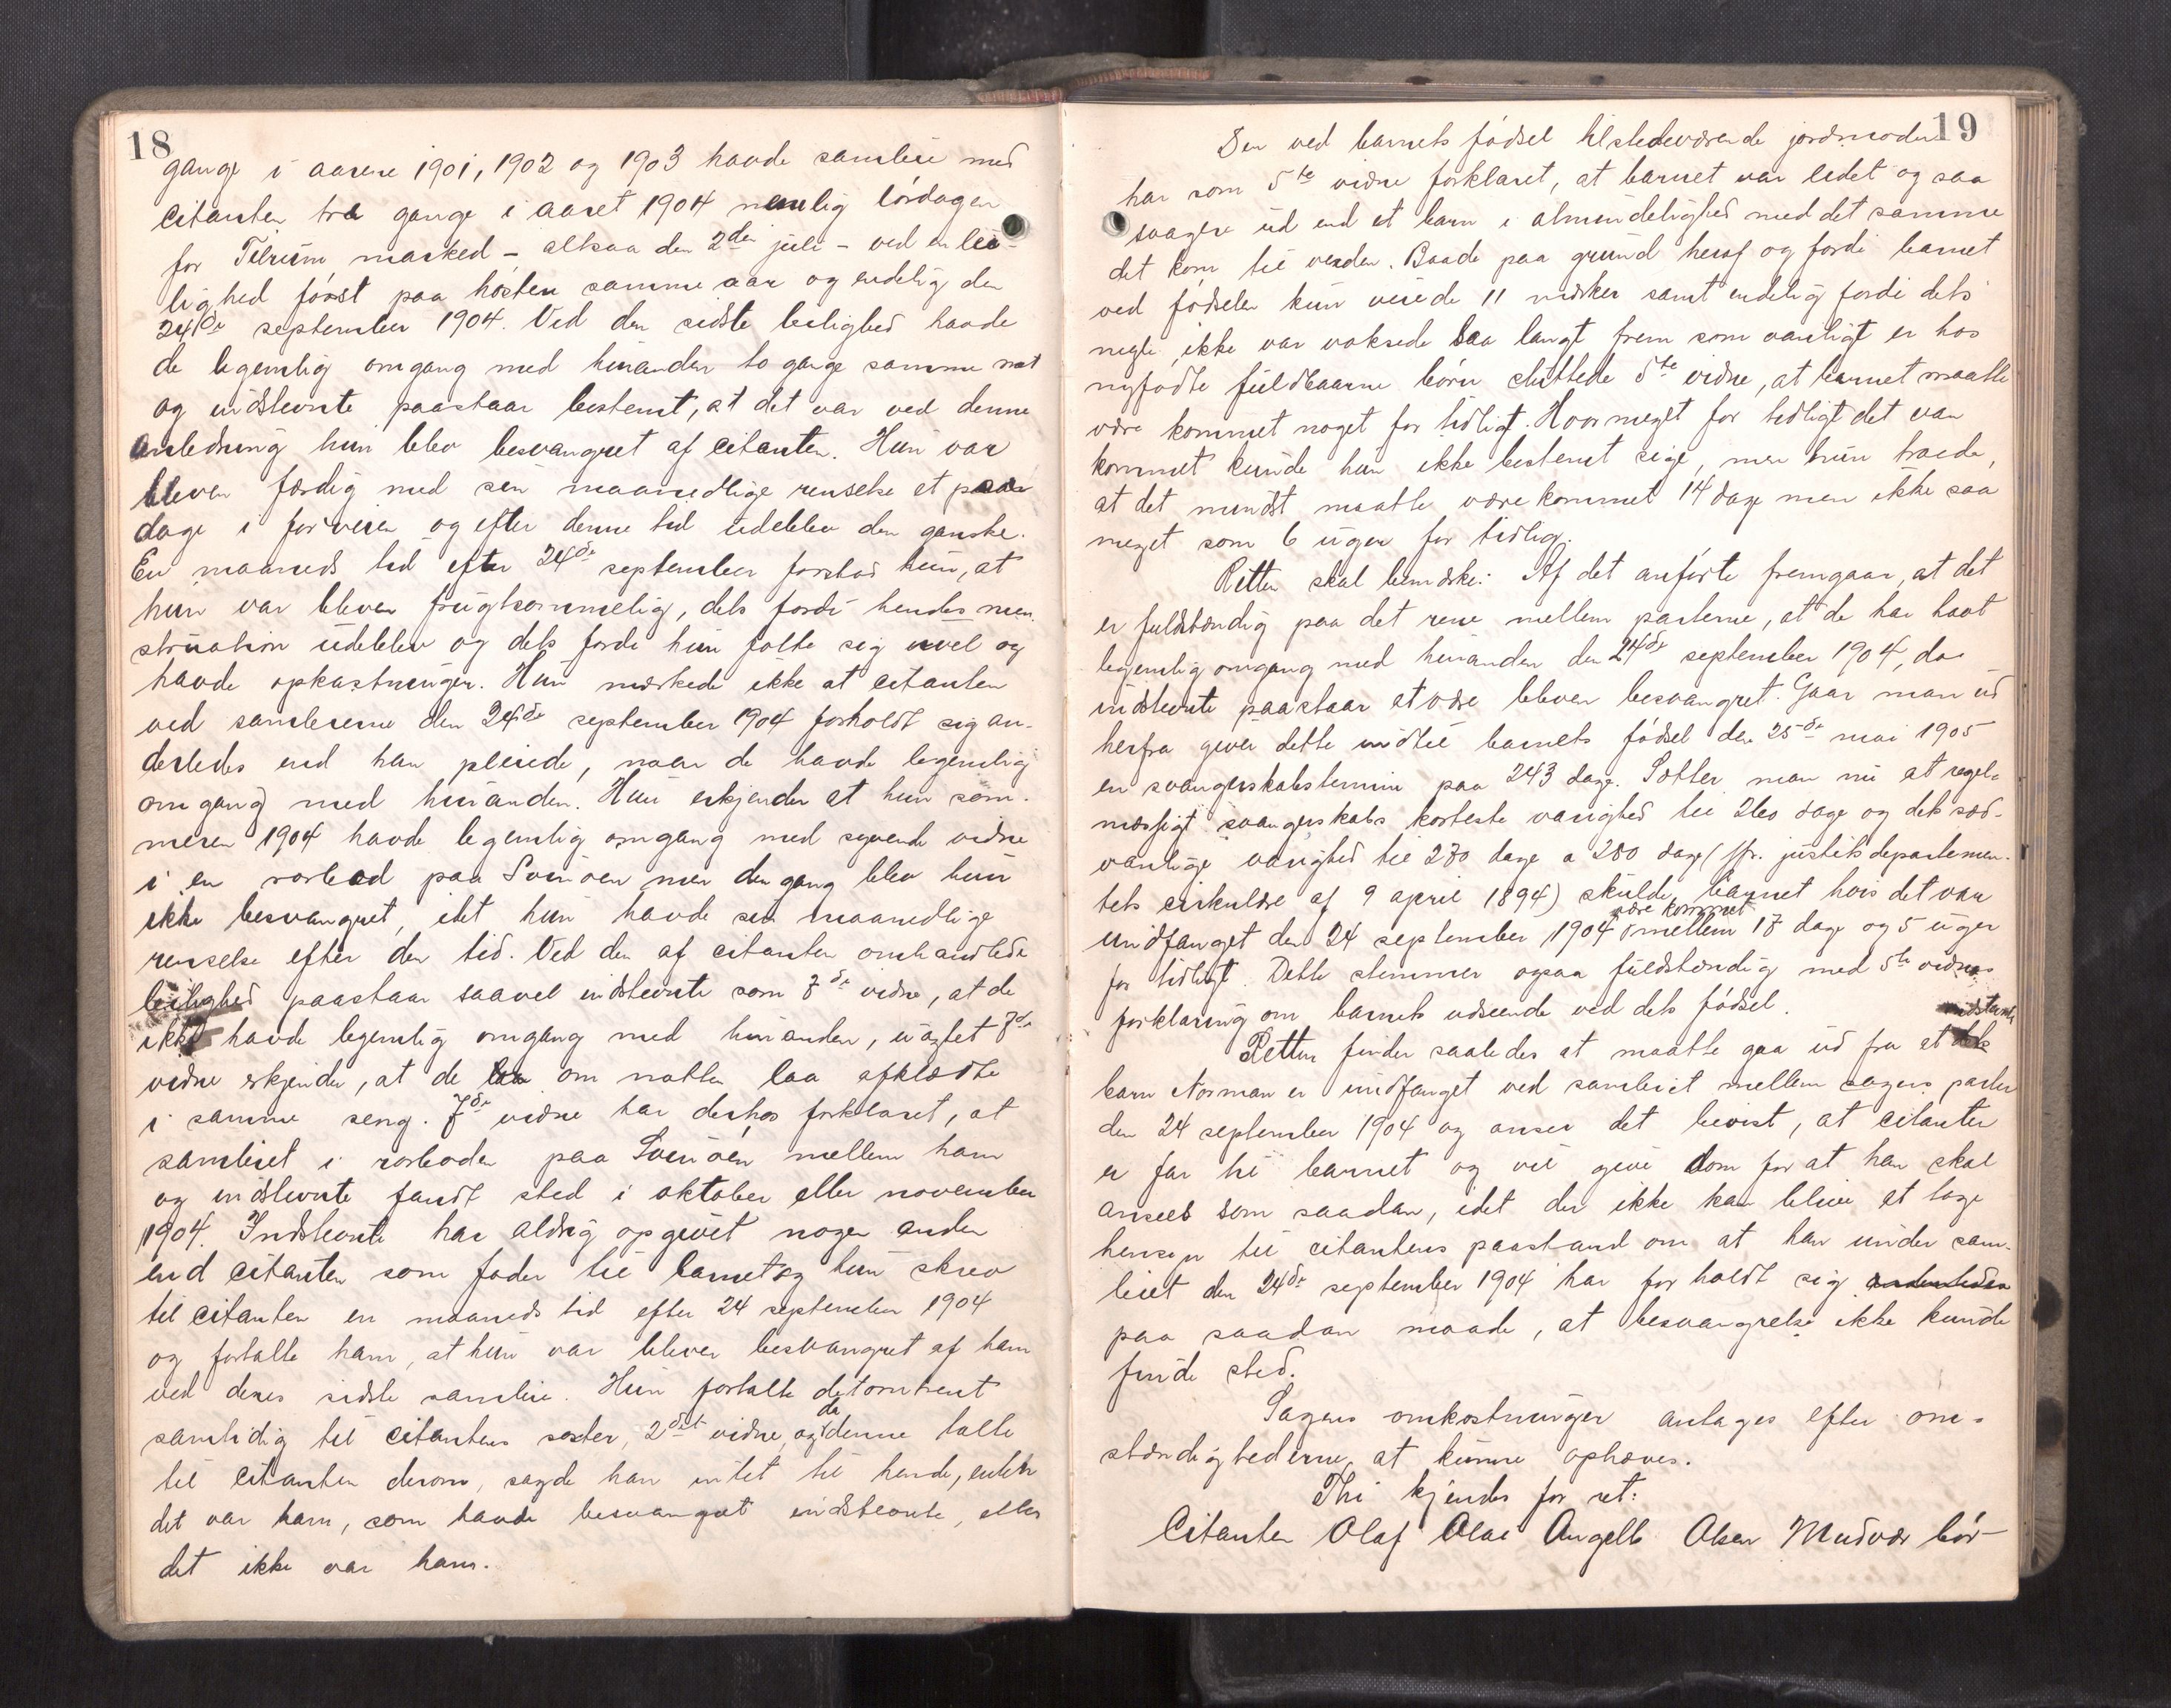 18
gange i aarene 1901, 1902 og 1903 havde samleie med
citanten tre gange i aaret 1904 nemlig lørdagen
for Tilrum marked - altsaa den 2den juli - ved en lei-
lighed først paa høsten samme aar og endelig den
24de september 1904. Ved den sidste leilighed havde
de legemlig omgang med hinanden to gange samme nat
og indstevnte paastaar bestemt, at det var ved denne
anledning hun blev besvangret af citanten. Hun var
bleven færdig med sin maanedlige renselse et par
dage i forveien og efter denne tid udeblev den ganske.
En maaneds tid efter 24de september forstod hun, at
hun var bleven frugtsommelig, dels fordi hendes men-
struation udeblev og dels fordi hun følte sig uvel og
havde opkastninger. Hun mærkede ikke at citanten
ved samleierne den 24de september 1904 forholdt sig an-
derledes end han pleiede, naar de havde legemlig
omgang med hinanden. Hun erkjender at hun som-
meren 1904 havde legemlig omgang med syvende vidne
i en rorbod paa Svinøen men den gang blev hun
ikke besvangret, idet hun havde sin maanedlige
renselse efter den tid. Ved den af citanten omhandlede
leilighed paastaar saavel indstevnte som 7de vidne, at de
ikke havde legemlig omgang med hinanden, uagtet 7de
vidne erkjender, at de laa om natten laa afklædte
i samme seng. 7de vidne har derhos forklaret, at
samleiet i rorboden paa Svinøen mellem ham
og indstevnte fandt sted i oktober eller november
1904. Indstevnte har aldrig opgivet nogen anden
end citanten som fader til barnet og hun skrev
til citanten en maaneds tid efter 24 september 1904
og fortalte ham, at hun var bleven besvangret af ham
ved deres sidste samleie. Hun fortalte det omtrent
samtidig til citantens søster, 2det vidne, og da denne talte
til citanten derom, sagde han intet til hende, enten
det var ham, som havde besvangret indstevnte, eller
det ikke var ham.
19
Den ved barnets fødsel tilstedeværende jordmoder
har som 5te vidne forklaret, at barnet var lidet og saa
svagere ud end et barn i almindelighed med det samme
det kom til verden. Baade paa grund heraf og fordi barnet
ved fødselen kun veiede 11 merker samt endelig fordi dets
negle ikke var voksede saa langt frem som vanligt er hos
nyfødte fuldbaarne børn sluttede 5te vidne, at barnet maatte
være kommet noget for tidligt. Hvor meget for tidligt det var
kommet kunde hun ikke bestemt sige, men hun troede,
at det mindst maatte være kommet 14 dage men ikke saa
meget som 6 uger for tidlig.
Retten skal bemærke: Af det anførte fremgaar, at det
er fuldstændig paa det rene mellem parterne, at de har havt
legemlig omgang med hinanden den 24de september 1904, da
indstevnte paastaar at være bleven besvangret. Gaar man ud
herfra giver dette indtil barnets fødsel den 25de mai 1905
en svangerskabstermin paa 243 dage. Sætter man nu et regel-
mæssigt svangerskabs korteste varighed til 260 dage og dets sæd-
vanlige varighed til 270 dage a 280 dage (jfr. justitsdepartemen-
tets cirkulære af 9 april 1894) skulde barnet hvis det var
undfanget den 24 september 1904 være kommet mellem 17 dage og 5 uger
for tidligt. Dette stemmer ogsaa fuldstændig med 5te vidnes
forklaring om barnets udseende ved dets fødsel.
Retten finder saaledes at maatte gaa ud fra at indstevntes
barn Norman er undfanget ved samleiet mellem sagens parter
den 24 september 1904 og anser det bevist, at citanten
er far til barnet og vil give dom for at han skal
ansees som saadan, idet der ikke kan blive at tage
hensyn til citantens paastand om at han under sam-
leiet den 24de september 1904 har forholdt sig anderledes
paa saadan maade, at besvangrelse ikke kunde
finde sted.
Sagens omkostninger antages efter om-
stændighederne at kunne ophæves.
Thi kjendes for ret:
Citanten Olaf Olai Angell Olsen Mudvær bør